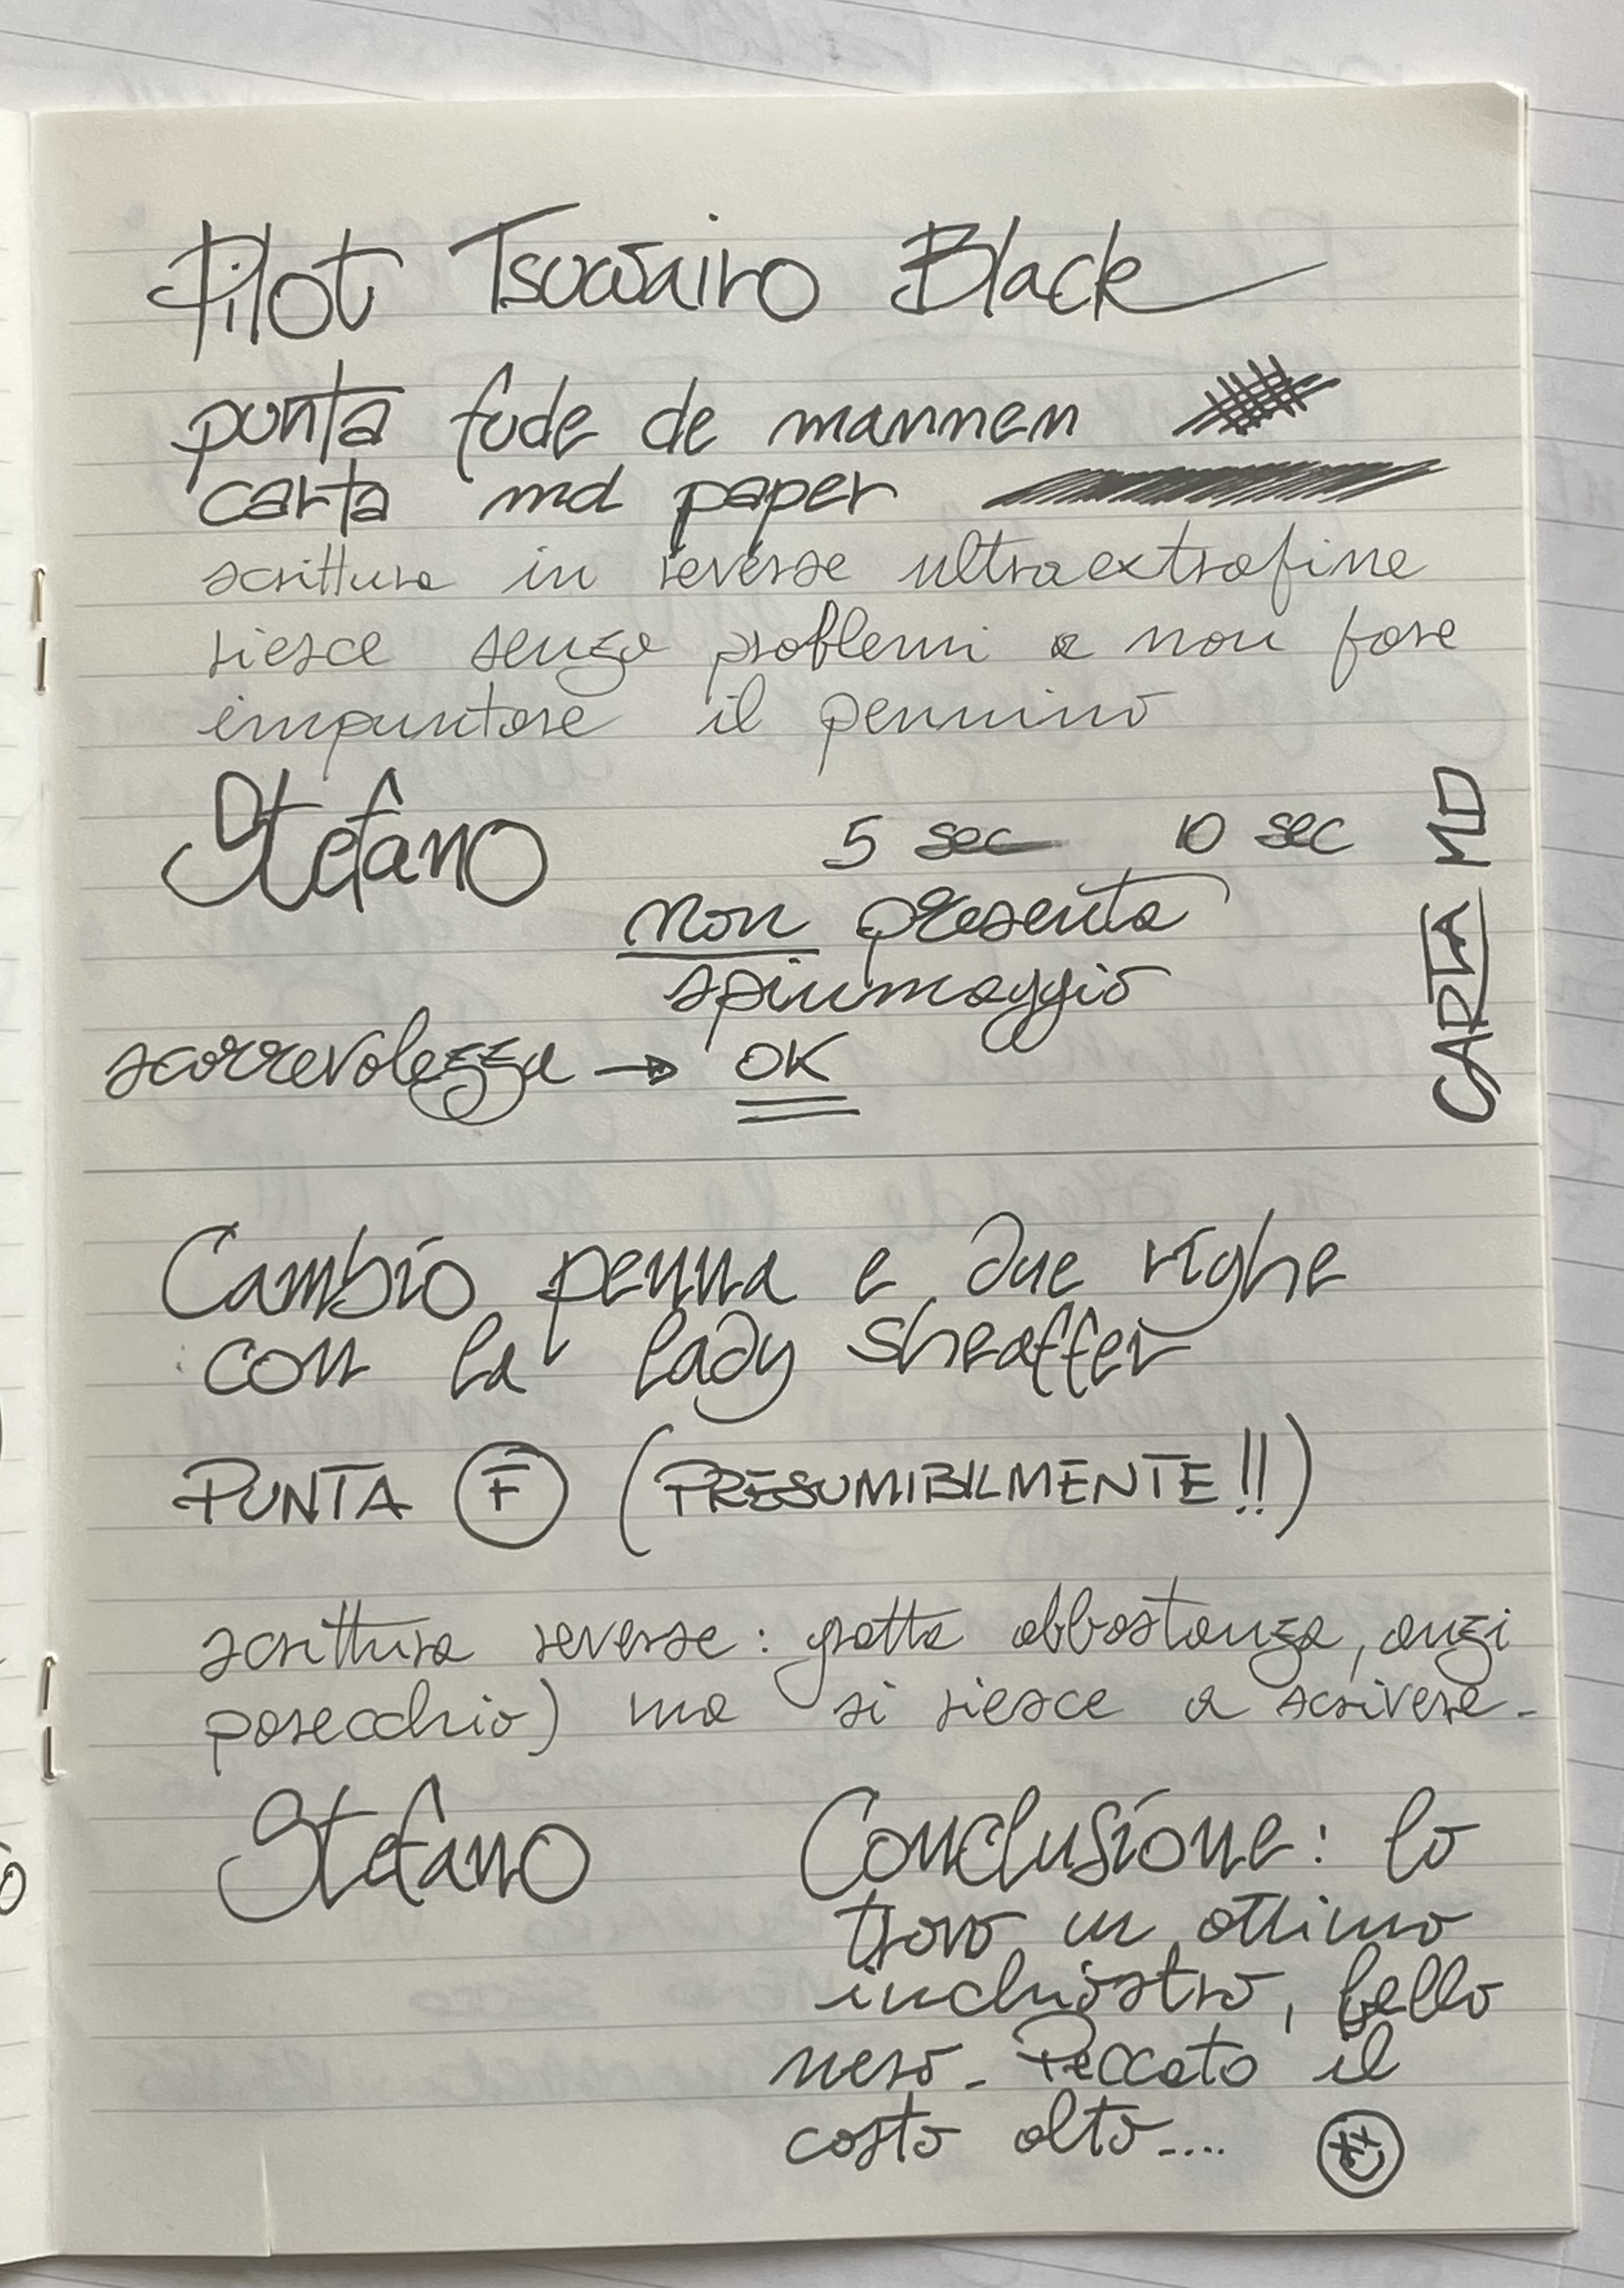 Pilot Tsuwairo Black
punta fude de mannen
carta md paper
scrittura in reverse ultraextrafine
riesce senza problemi a non fare
impuntare il pennino
Stefano
5 sec 10 sec
non presenta
spiumaggio
scorrevolezza → OK
CARTA MD
Cambio penna e due righe
con la lady sheaffer
PUNTA F (PRESUMIBILMENTE!!)
scrittura reverse: gratta abbastanza, anzi
parecchio) ma si riesce a scrivere.
Stefano
Conclusione: lo
trovo un ottimo
inchiostro, bello
nero. Peccato il
costo alto....